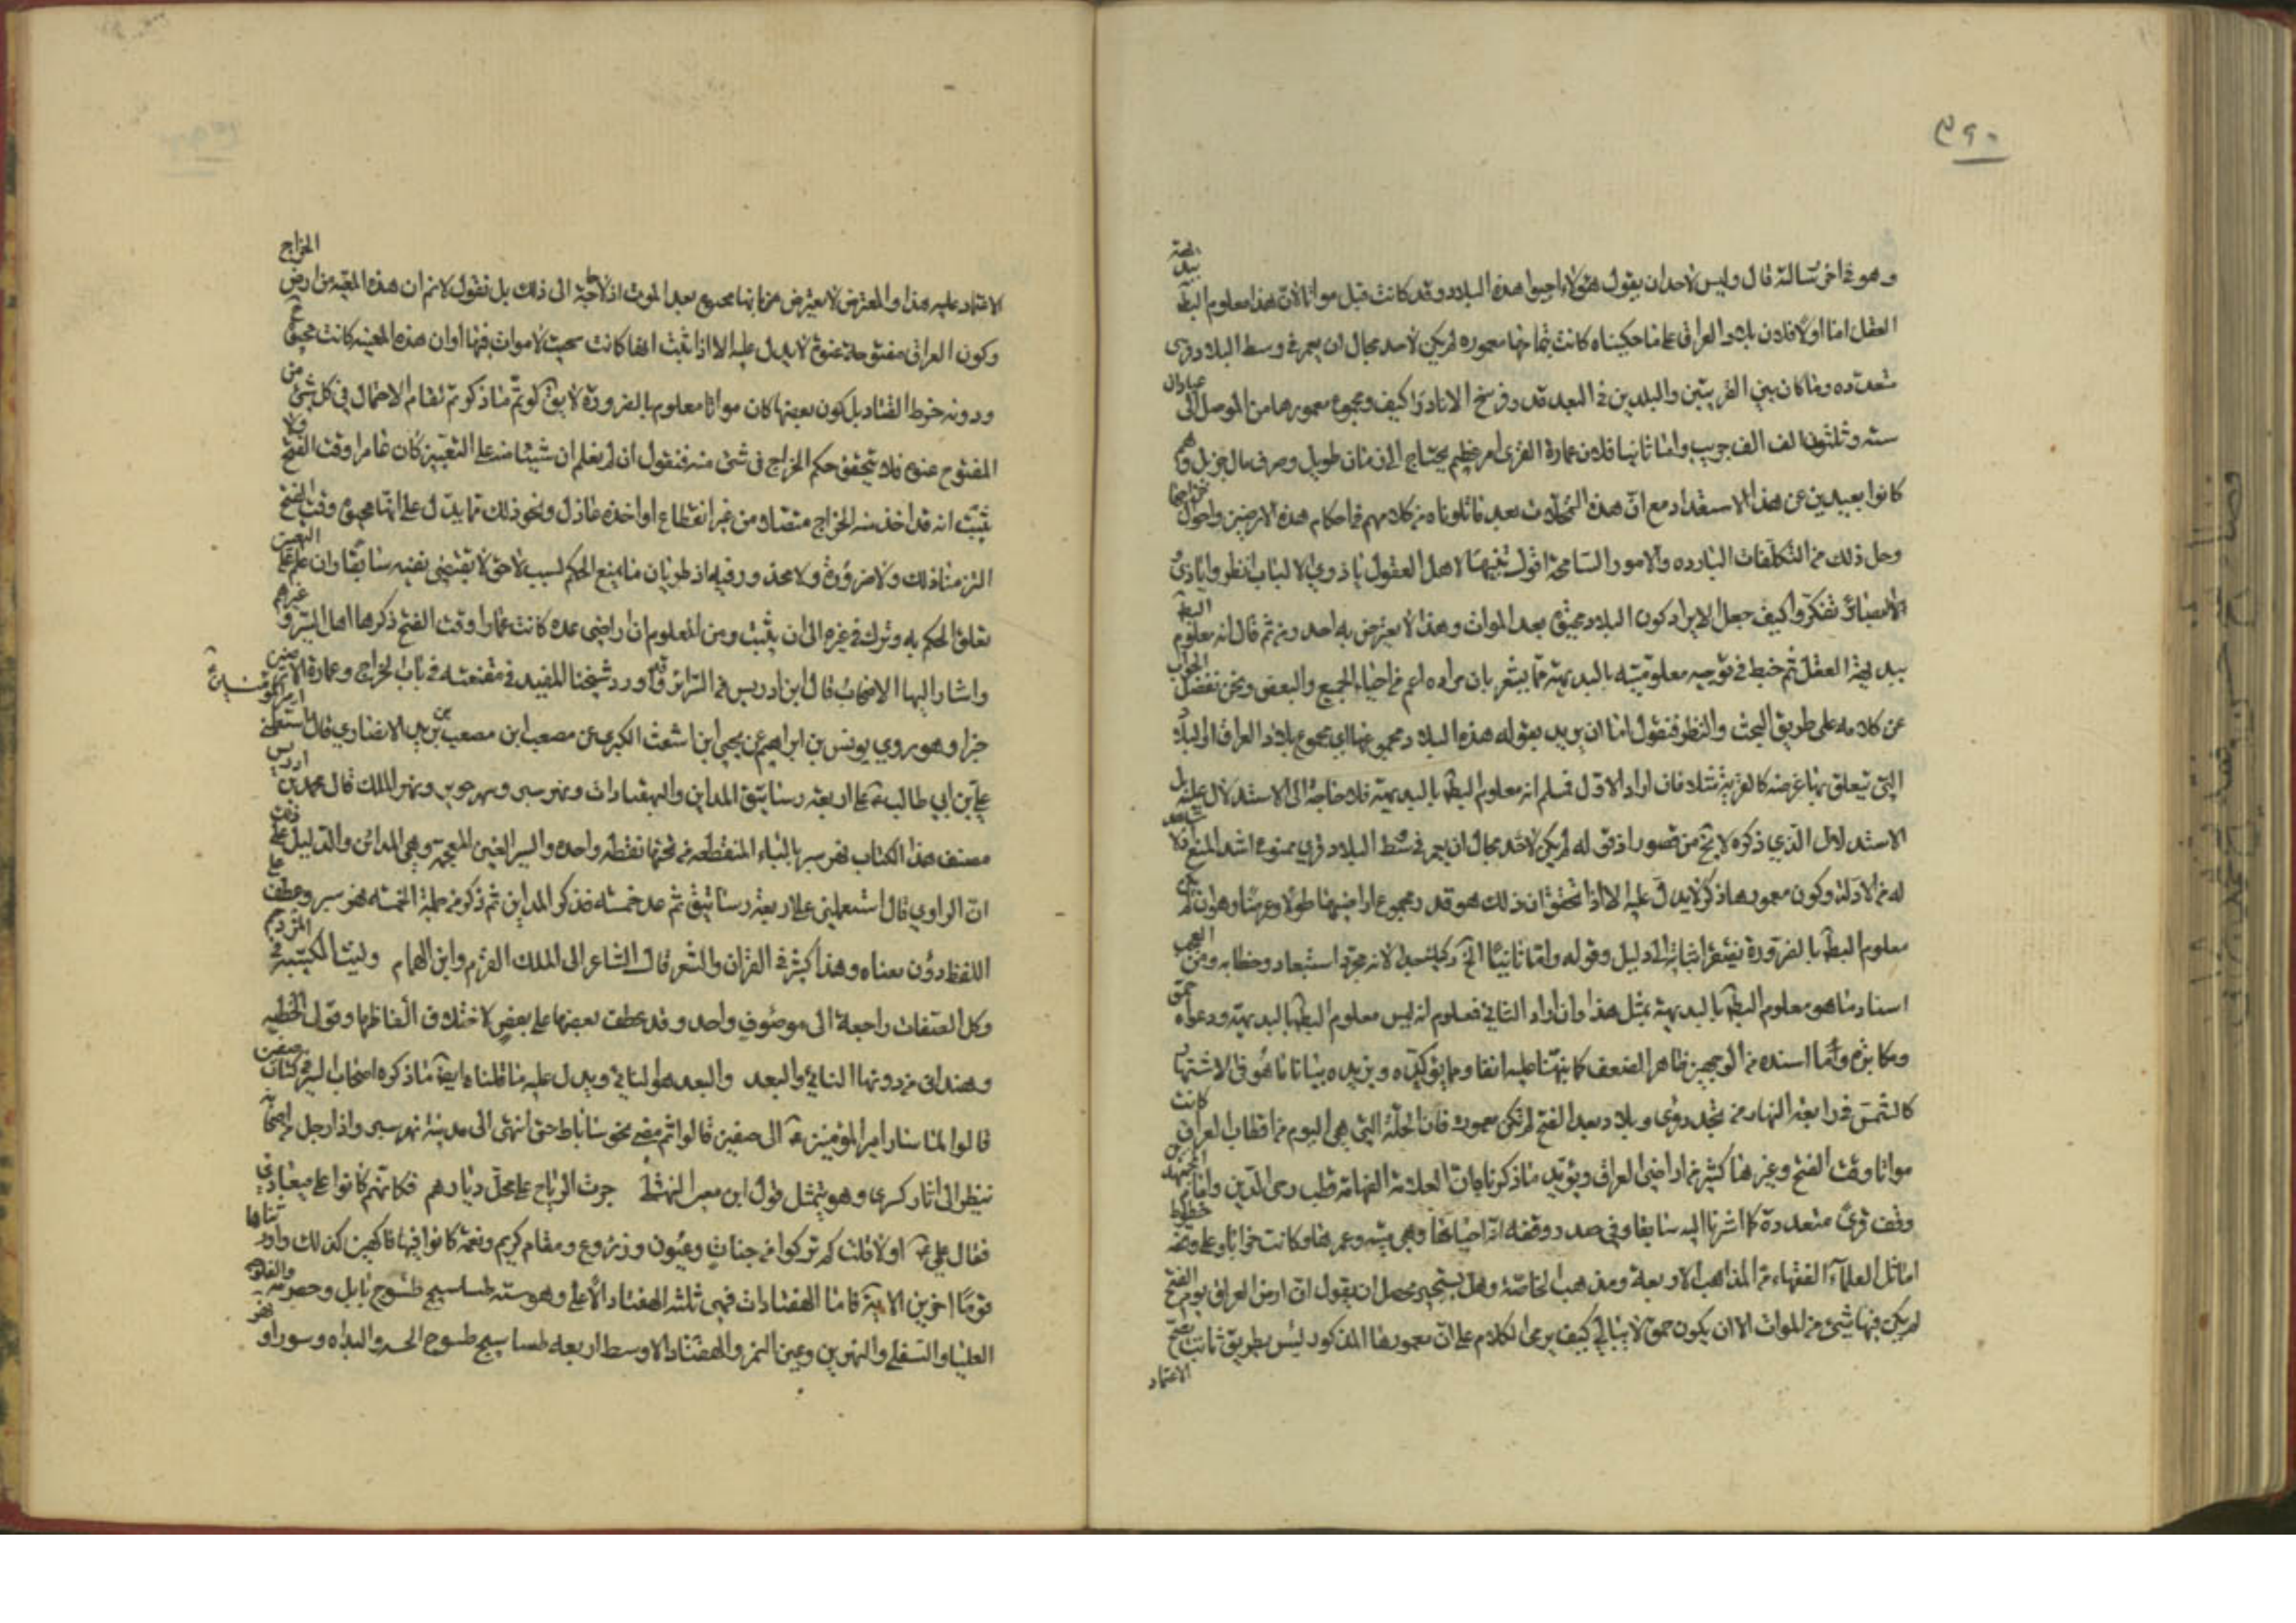 ٣٩٠
وهو في اخر رسالة قال وليس لاحد ان يقول هؤلاء احيوا هذه البلاد وقد كانت قبل مواتا لان هذا معلوم البط ببديهة
العقل اما اولا فلان بلاد العراق على ما حكيناه كانت بتمامها معموره لم يكن لاحد مجال ان يعمر في وسط البلاد قرى
متعدده وما كان بين القريتين والبلدين في البعد قدر فرسخ الا نادرا كيف ومجموع معمورها من الموصل الى عبادان
سته وثلثون الف الف جريب واما ثانيا فلان عمارة القرى امر عظيم يحتاج الى زمان طويل وصرف مال جزيل وهم
كانوا بعيدين عن هذا الاستعداد مع ان هذه بعد ما تلوناه من كلامهم في احكام هذه الارضين واحوال خراجها
وحل ذلك من التكلفات البارده والامور السامجة اقول تنبيها لاهل العقول يا ذوي الالباب انظروا ويا ذوي
الابصار تفكروا كيف جعل الايراد كون البلاد محياة بعد الموات وهذا لا يعترض به احد ومن ثم قال انه معلوم البط
ببديهة العقل ثم خبط في توجيه معلوميته بالبديهة مما يشعر بان مراده اعم من احياء الجميع والبعض ونحن نفصل الجواب
عن كلامه على طريق البحث والنظر فنقول اما ان يريد بقوله هذه البلاد مجموعها اي مجموع بلاد العراق او البلاد
التي تتعلق بها غرضه كالغريه مثلا فان اراد الاول فمسلم انه معلوم البط بالبديهة فلا حاجة الى الاستدلال عليه بل
الاستدلال الذي ذكره لا يخ من قصور اذ قوله لم يكن لاحد مجال ان يعمر في وسط البلاد قرى ممنوع اشد المنع فلا شاهد
له من الادلة وكون معمورها ذكر لا يدل عليه الا اذا تحقق ان ذلك هو قدر مجموع اراضيها طولا وعرضا وهو ان لم يكن
معلوم البط بالضرورة يفتقر اثباته الى دليل وقوله واما ثانيا الخ لانه مجرد استبعاد وخطابه ومن العجب
اسناد ما هو معلوم البط بالبديهة بمثل هذا وان اراد الثاني فمعلوم انه ليس معلوم البط بالبديهة ودعواه حمق
ومكابرة واما اسنده من الوجهين فظاهر الضعف كما نبهنا عليه انفا ومما يؤكده ويزيده بيانا ما هو في الاشتهار
كالشمس في رابعة النهار من تجدد قرى وبلاد بعد الفتح لم تكن معمورة فان الحلة التي هي اليوم من اقطاب العراق كانت
مواتا وقت الفتح وغيرها كثير من اراضي العراق ويؤيد ما ذكرناه ان العلامة الفهامة قطب رحى الدين وامام المجتهدين
وقف قرى متعددة كما اشرنا اليه سابقا وفي صدر وقفه انه احياها وهي ميته وعمرها وكانت خرابا وعلى وقفه خطوط
اماثل العلماء الفقهاء من المذاهب الاربعة ومذهب الخاصة وهل يستجيز محصل ان يقول ان ارض العراق يوم الفتح
لم يكن فيها شيء من الموات الا ان يكون حمق لا يبالي كيف يرمي الكلام على ان معمورها المذكور ليس بطريق ثابت يصح
الاعتماد
الاعتماد عليه هذا والمعترض لا يعترض من بانها محياة بعد الموت اذ لا حاجة الى ذلك بل نقول لا نم ان هذه المعينه من ارض الخراج
وكون العراق مفتوحة عنوة لا يدل عليه الا اذا ثبت انها كانت بحيث لا موات فيها او ان هذه المعينه كانت محياة ح
ودونه خرط القتاد بل كون بعضها كان مواتا معلوم بالضرورة لا يق لو تم ما ذكرتم لقام الاحتمال في كل شيء من
المفتوح عنوة فلا يتحقق حكم الخراج في شيء منه فنقول ان لم يعلم ان شيئا منه على التعيين كان عامرا وقت الفتح ولا
يثبت انه قد اخذ منه الخراج متضاد من غير انقطاع او اخذه عادل ونحو ذلك مما يدل على انها محياة وقت الفتح
التزمنا ذلك ولا ضرورة ولا محذور فيه اذ طريان ما يمنع الحكم لسبب لاحق لا يقتضي نفيه سابقا وان علم على التعيين
تعلق الحكم به وترك في غيره الى ان يثبت ومن المعلوم ان اراضي عدة كانت عمارا وقت الفتح ذكرها اهل السير وغيرهم
واشار اليها الاصحاب قال ابن ادريس في السرائر وقد اورد شيخنا المفيد في مقنعته في باب الخراج وعمارة الارضين
خبرا وهو روى يونس بن ابراهيم عن يحيى ابن اشعث الكندي عن مصعب ابن يزيد الانصاري قال استعملني امير المؤمنين
علي بن ابي طالب ع على اربعة رساتيق المداين والبهقباذات ونهر سير ونهر جوير ونهر الملك قال محمد بن ادريس
مصنف هذا الكتاب نهر سير بالباء المنقطه من تحتها نقطه واحده والسين الغير المعجمة وهي المدائن والدليل على ذلك
ان الراوي قال استعملني على اربعة رساتيق ثم عد خمسه فذكر المداين ثم ذكر من جملة الخمسه نهر سير وعطف على
اللفظ دون معناه وهذا كثير في القران والشعر قال الشاعر الى الملك القرم وابن الهمام وليث الكتيبة في المزدحم
وكل الصفات راجعة الى موصوف واحد وقد عطف بعضها على بعض لاختلاف الفاظها وقول الحطيه
وهند اتى من دونها النائي والبعد والبعد هو النائي ويدل عليه ما قلناه ايضا ما ذكره اصحاب السير في كتاب صفين
قالوا لما سار امير المؤمنين ع الى صفين قالوا ثم مضى نحو ساباط حتى انتهى الى مدينة نهر سير واذا رجل من اصحابه
ينظر الى اثار كسرى وهو يتمثل بقول ابن يعفر النهشلي جرت الرياح على محل ديارهم فكانهم كانوا على ميعاد
فقال علي ع اولا قلت كم تركوا من جنات وعيون وزروع ومقام كريم ونعمة كانوا فيها فاكهين كذلك واورثناها
قوما اخرين الاية فاما البهقباذات فهي ثلثه البهقباذ الاعلى وهو سته طساسيج طسوج بابل وخطرنيه والفلوجه
العليا والسفلى والنهرين وعين التمر والبهقباذ الاوسط اربعه طساسيج طسوج الجبه والبداه وسورا و نهر